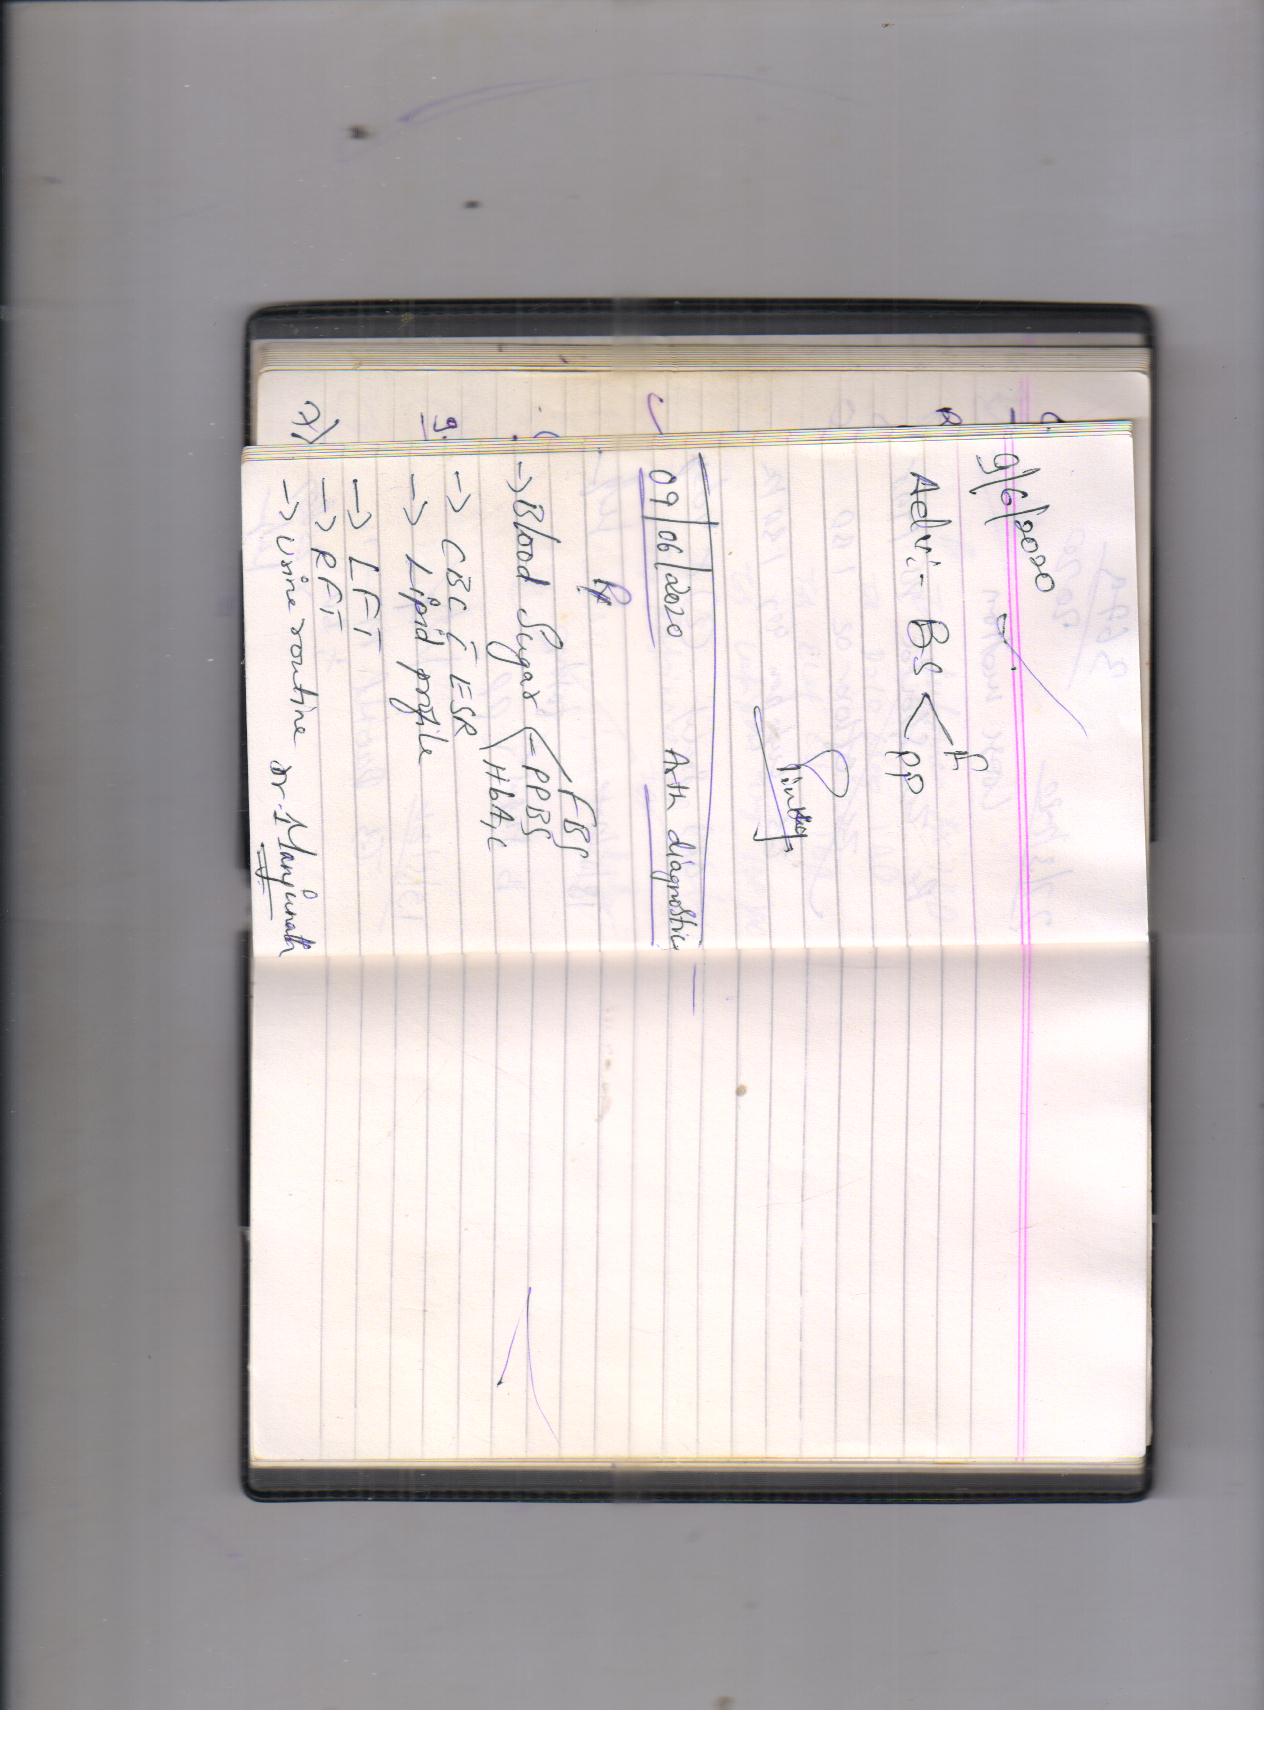 9/6/2020
Adv:- BS < F
PP
09/06/2020 Arth diagnostics
Rx
-> Blood Sugar FBS
PPBS
HbA1c
-> CBC c̄ ESR
-> Lipid profile
-> LFT
-> RFT
-> urine routine Dr. Manjunath
7)
9.